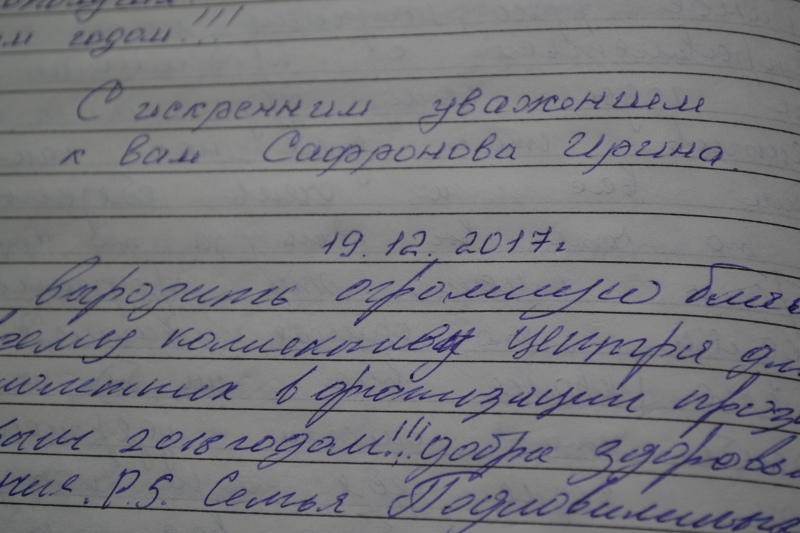 м годом!!!
С искренним уважением
к вам Сафронова Ирина.
19.12.2017г
вырозить огромную благ
колективу центра дл
летних в организации празд
ым 2018 годом!!! добра здоровь
ния. P.S. Семья